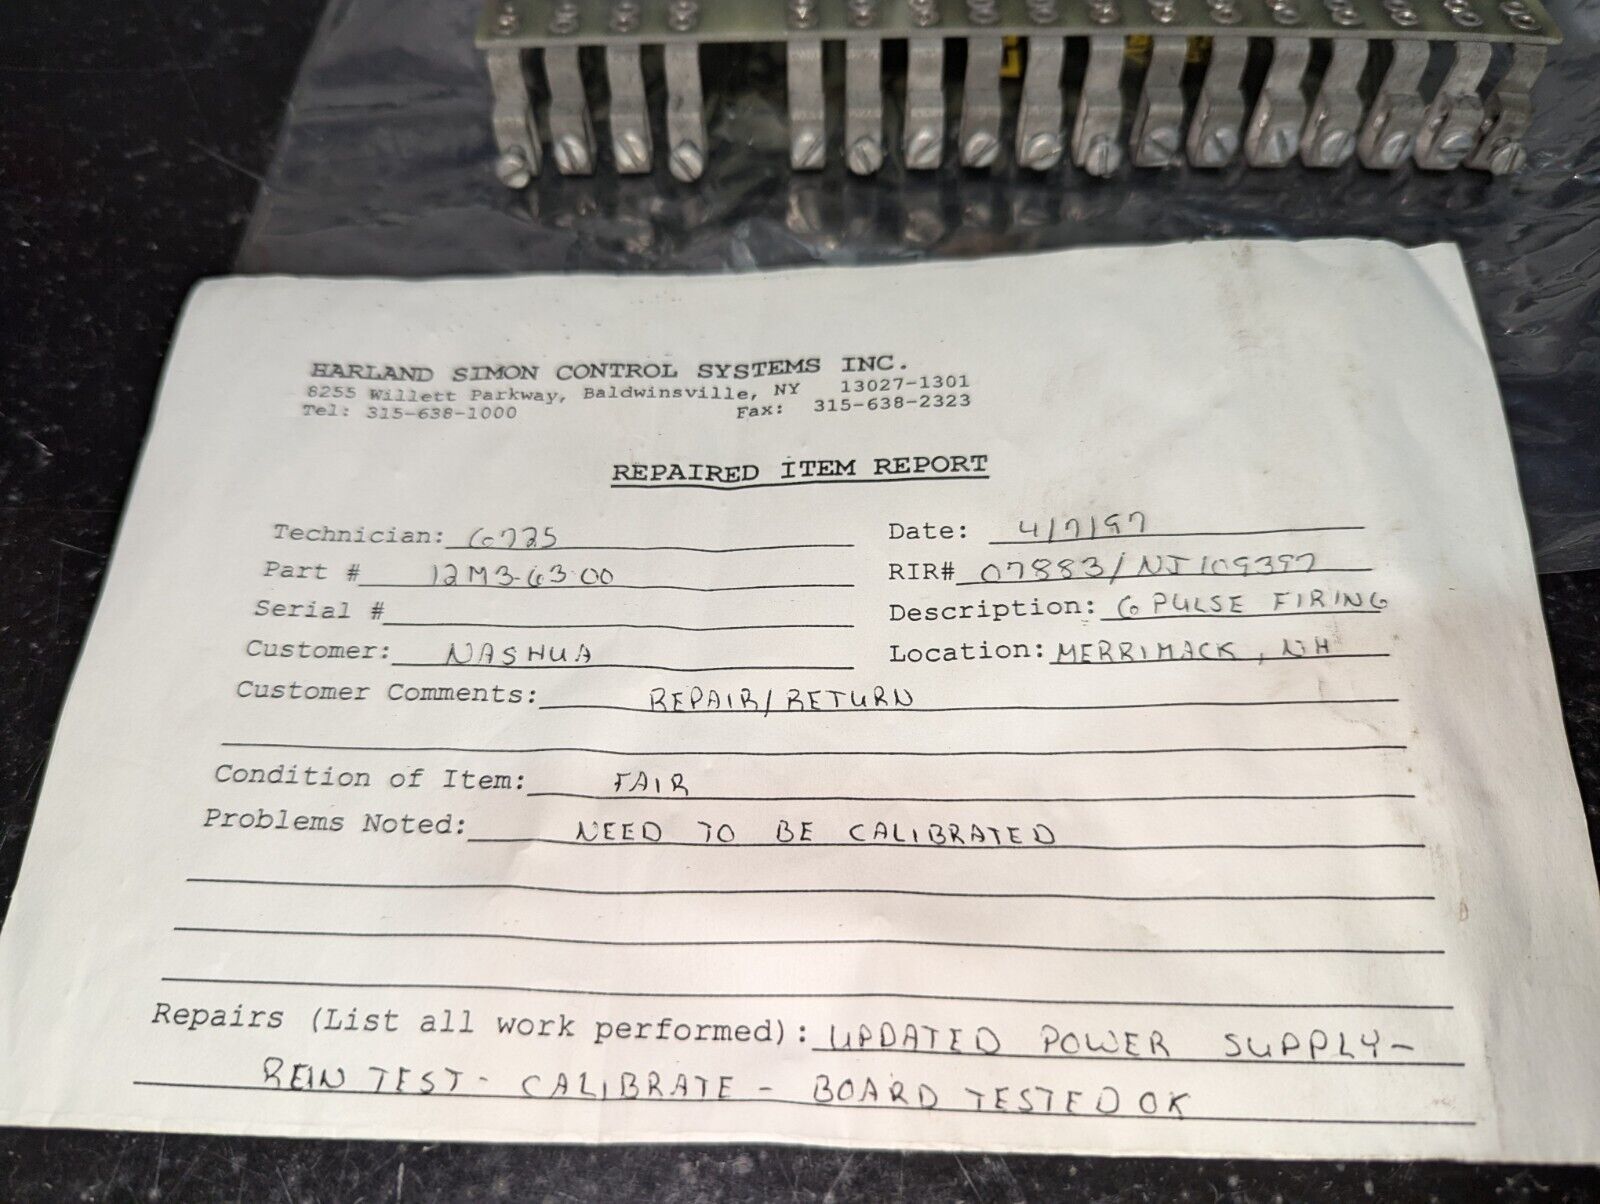 HARLAND SIMON CONTROL SYSTEMS INC.
8255 Willett Parkway, Baldwinsville, NY 13027-1301
Tel: 315-638-1000 Fax: 315-638-2323
REPAIRED ITEM REPORT
Technician: G725 Date: 4/7/97
Part # 12M3-63-00 RIR# 07883/NJ109397
Serial # Description: 6 PULSE FIRING
Customer: NASHUA Location: MERRIMACK, NH
Customer Comments: REPAIR/RETURN
Condition of Item: FAIR
Problems Noted: NEED TO BE CALIBRATED
Repairs (List all work performed): UPDATED POWER SUPPLY-
TEST - CALIBRATE - BOARD TESTED OK